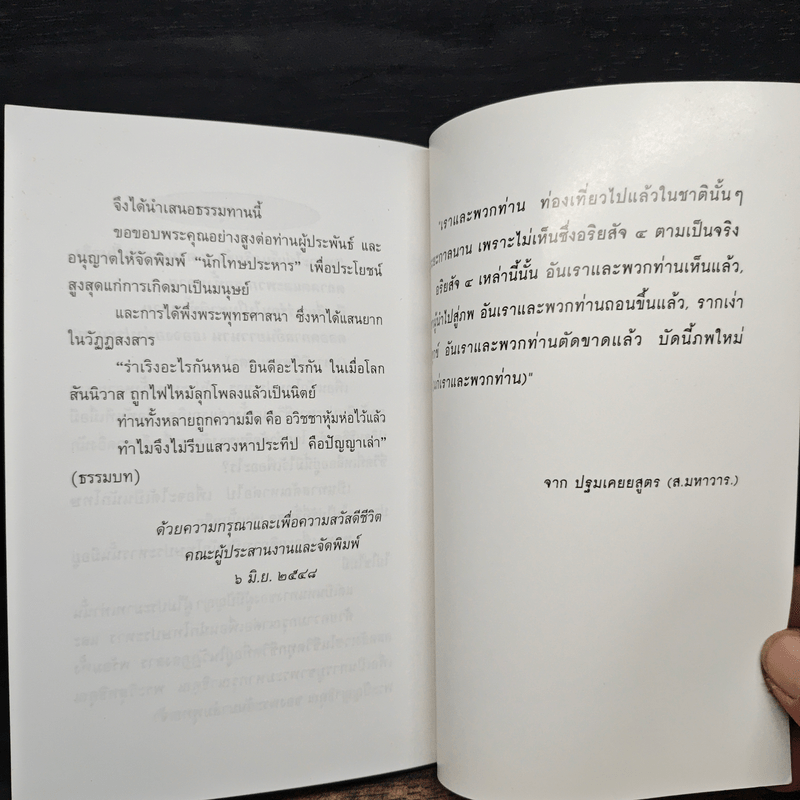 จึงได้นำเสนอธรรมทานนี้
ขอขอบพระคุณอย่างสูงต่อท่านผู้ประพันธ์ และ
อนุญาตให้จัดพิมพ์ "นักโทษประหาร" เพื่อประโยชน์
สูงสุดแก่การเกิดมาเป็นมนุษย์
และการได้พึ่งพระพุทธศาสนา ซึ่งหาได้แสนยาก
ในวัฏฏสงสาร
"ร่าเริงอะไรกันหนอ ยินดีอะไรกัน ในเมื่อโลก
สันนิวาส ถูกไฟไหม้ลุกโพลงแล้วเป็นนิตย์
ท่านทั้งหลายถูกความมืด คือ อวิชชาหุ้มห่อไว้แล้ว
ทำไมจึงไม่รีบแสวงหาประทีป คือปัญญาเล่า"
(ธรรมบท)
ด้วยความกรุณาและเพื่อความสวัสดีชีวิต
คณะผู้ประสานงานและจัดพิมพ์
๖ มิ.ย. ๒๕๔๘
"เราและพวกท่าน ท่องเที่ยวไปแล้วในชาตินั้นๆ
กาลนาน เพราะไม่เห็นซึ่งอริยสัจ ๔ ตามเป็นจริง
อริยสัจ ๔ เหล่านี้นั้น อันเราและพวกท่านเห็นแล้ว,
นำไปสู่ภพ อันเราและพวกท่านถอนขึ้นแล้ว, รากเง่า
อันเราและพวกท่านตัดขาดแล้ว บัดนี้ภพใหม่
แก่เราและพวกท่าน)"
จาก ปฐมเคยยสูตร (ส.มหาวาร.)